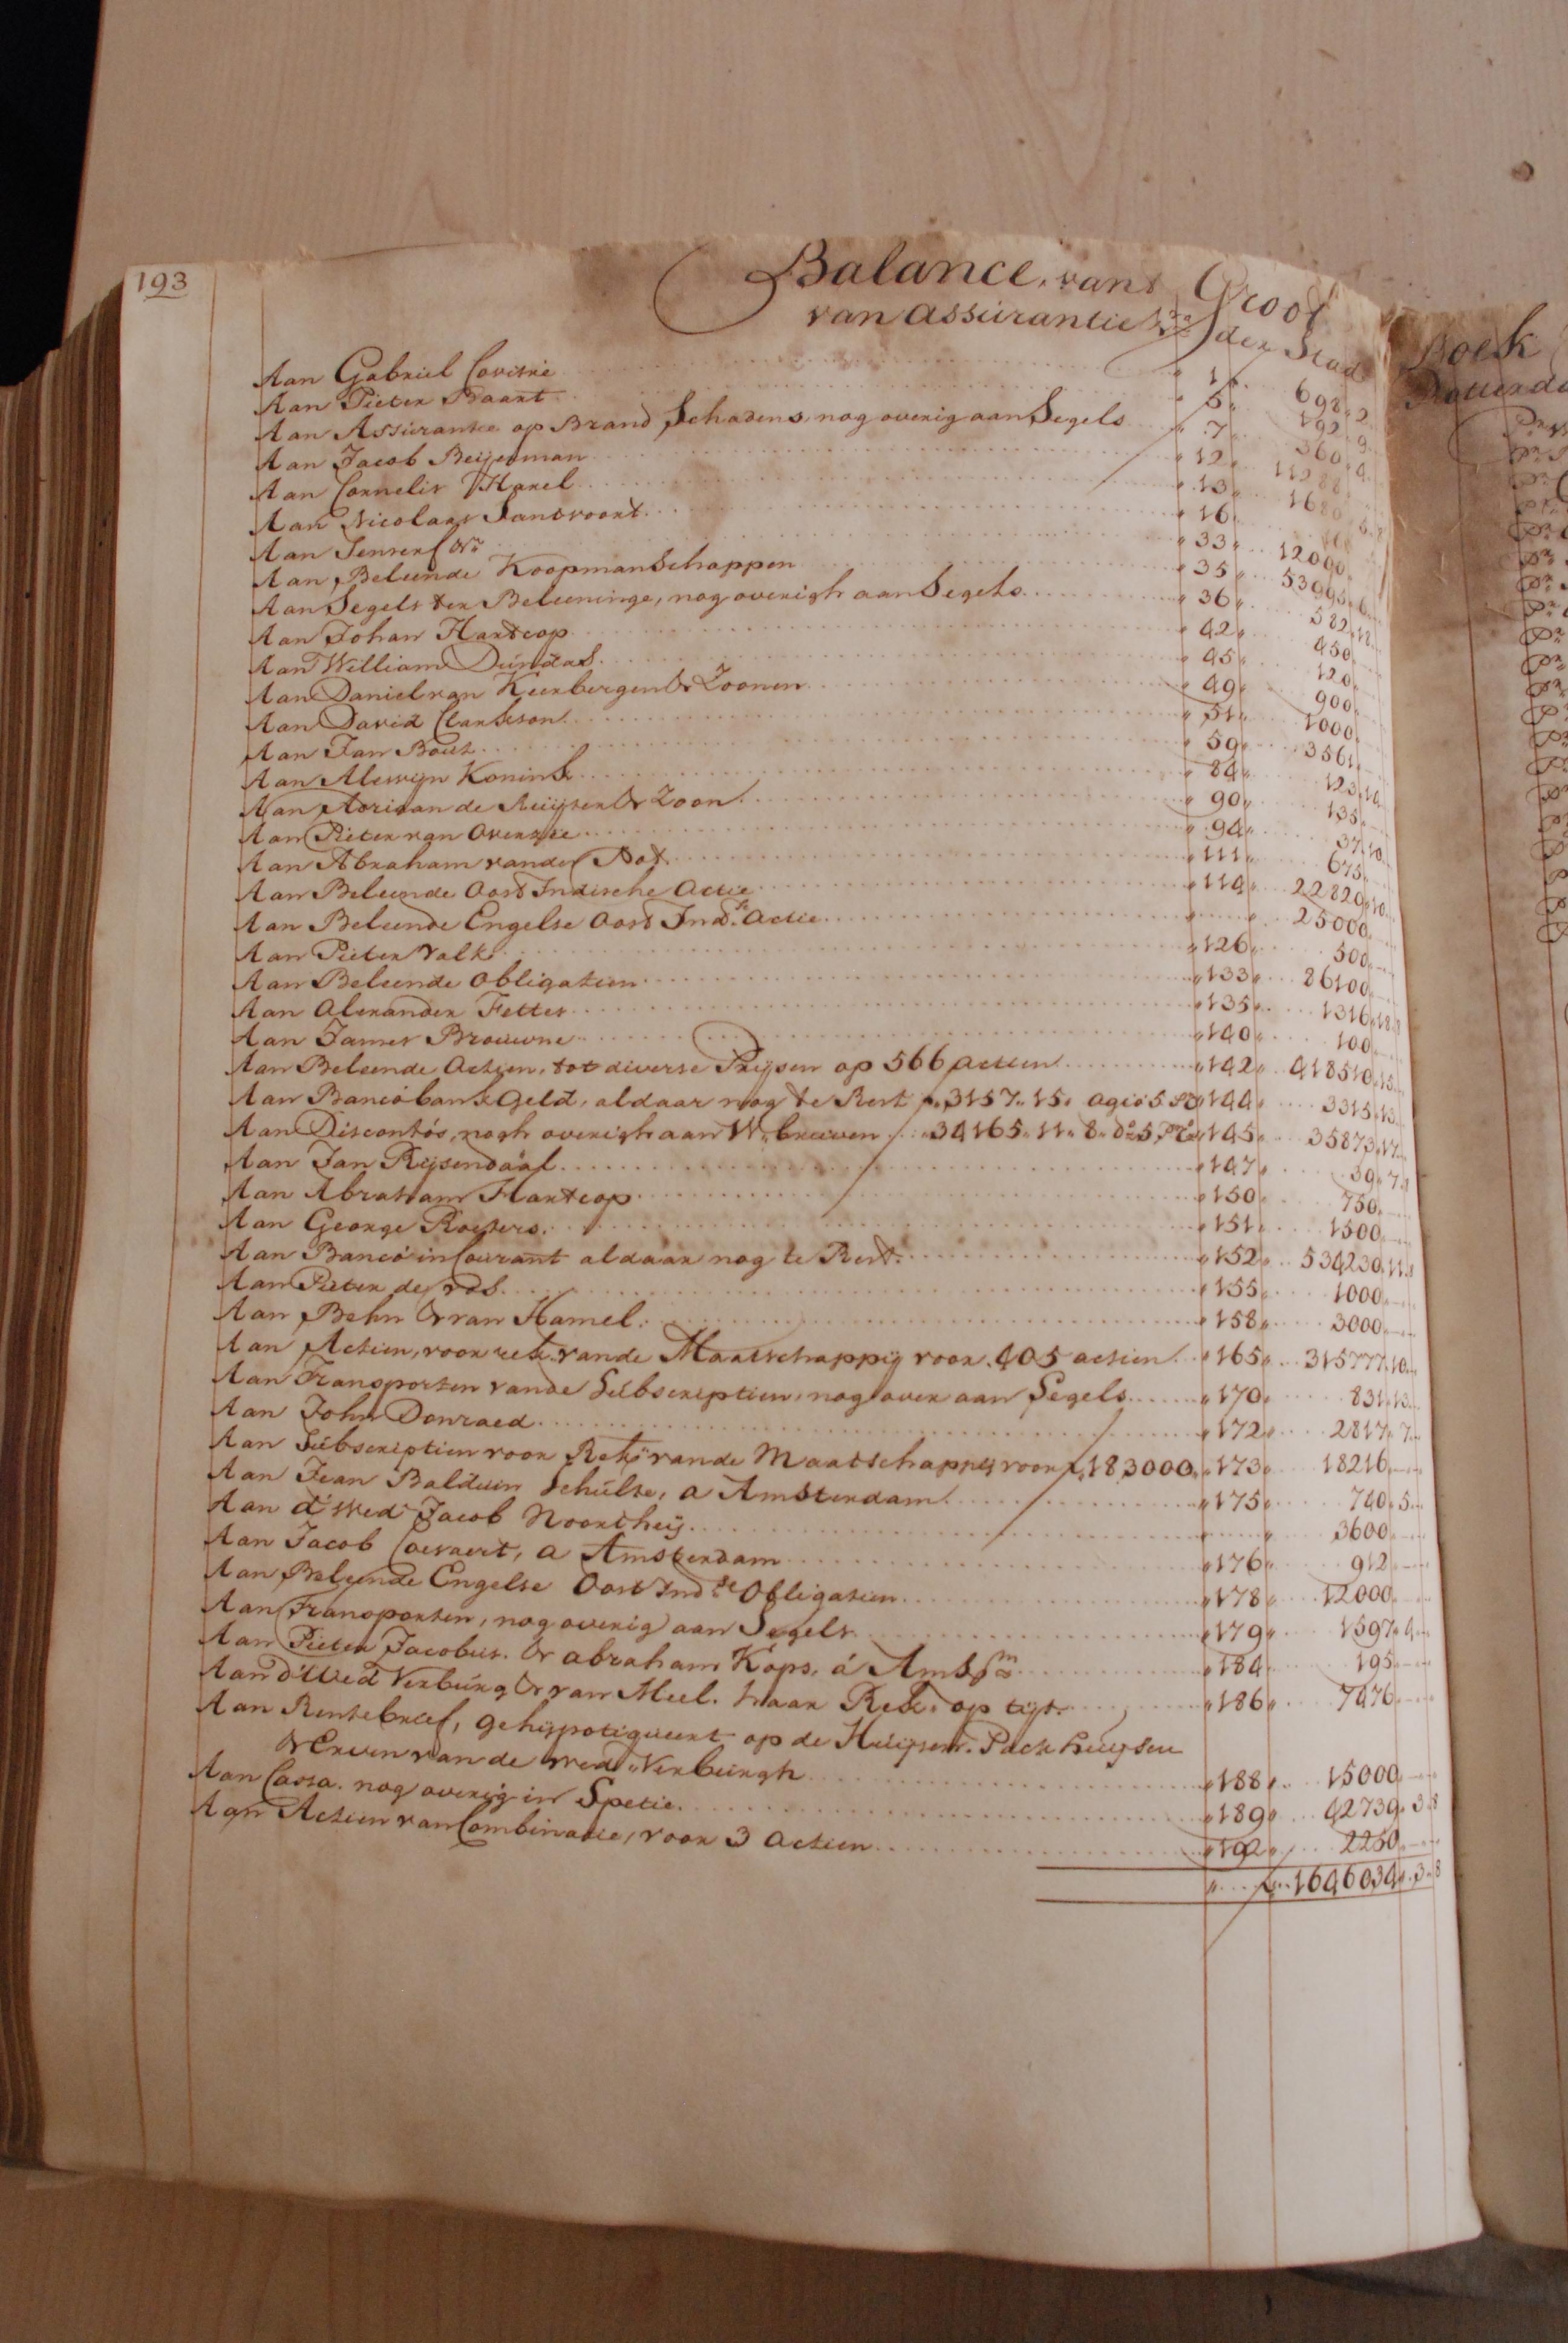 193
Balance, vant Groot
van assurantie der Stad
Boek
Aan Gabriel 1 698 2
Aan Pieter Baart 5 192 9
Aan Assurantie op Brand Schadens, nog overig aan Segels 7 360 4
Aan Jacob Beijerman 12
Aan Cornelis 't Harel 13
Aan Nicolaas Santvoort 16
Aan 33 12000
Aan Beleende Koopmanschappen 35 53995 6
Aan Segels der Beleeninge, nog overigh aan Segels 36 582 18
Aan Johan Hartcop 42 450
Aan William Dundas 45 120
Aan Daniel van Keerbergen & Zoonen 49 900
Aan David Clarkson 51 1000
Aan Jan Bout 59 3561
Aan Alewyn Konink 84 123 10
Aan Adriaan de Ruijter & Zoon 90 135
Aan Pieter van Overzee 94 37 10
Aan Abraham vander Pot 111 675
Aan Beleende Oost Indische Actie 114 22820 10
Aan Beleende Engelse Oost Ind.se Actie 25000
Aan Pieter Valk 126 500
Aan Beleende Obligatien 133 86100
Aan Alexander Fetter 135 1316 18 8
Aan James Brouwne 140 100
Aan Beleende Actien, tot diverse Prijsen op 566 actien 142 418510 15
Aan Banco bank Geld, aldaar nog te Rest ƒ 3157 15 agio 5 142 144 3315 13
Aan Disconto's, nogh overigh aan W. brieven 34165 11 8 do 5 145 35873 17
Aan Jan Rijsendaal 147 39 7 8
Aan Abraham Hartcop 150 750
Aan George Roeters 151 1500
Aan Banco in Courant aldaar nog te Rest 152 534230 11 8
Aan Pieter de Vos 155 1000
Aan Behn & van Hamel 158 3000
Aan Actien, voor rek. vande Maatschappij voor 405 actien 165 315777 10
Aan Transporten vande Subscriptien, nog over aan Segels 170 831 13
Aan John Donraed 172 2817 7
Aan Subscriptien voor Rek. vande Maatschappij voor ƒ 183000 173 18216
Aan Jean Balduin Schulte, a Amsterdam 175 740 5
Aan d'Wed Jacob Noorthey 3600
Aan Jacob Coevaert, a Amsterdam 176 912
Aan Beleende Engelse Oost Ind.se Obligatien 178 12000
Aan Transporten, nog overig aan Segels 179 1597 4
Aan Pieter Jacobus & abraham Kops, á Amstm 184 195
Aan d'Wed Verburg & van Meel. haar Rek. op tijt 186 7476
Aan Rentebrief, gehijpotiqueert op de Huijsen, Packhuijsen
& Erven van de Wed. Verburgh 188 15000
Aan Cassa nog overig in Spetie 189 42739 3 8
Aan Actien van Combinatie, voor 3 actien 192 2250
ƒ 1646034 3 8